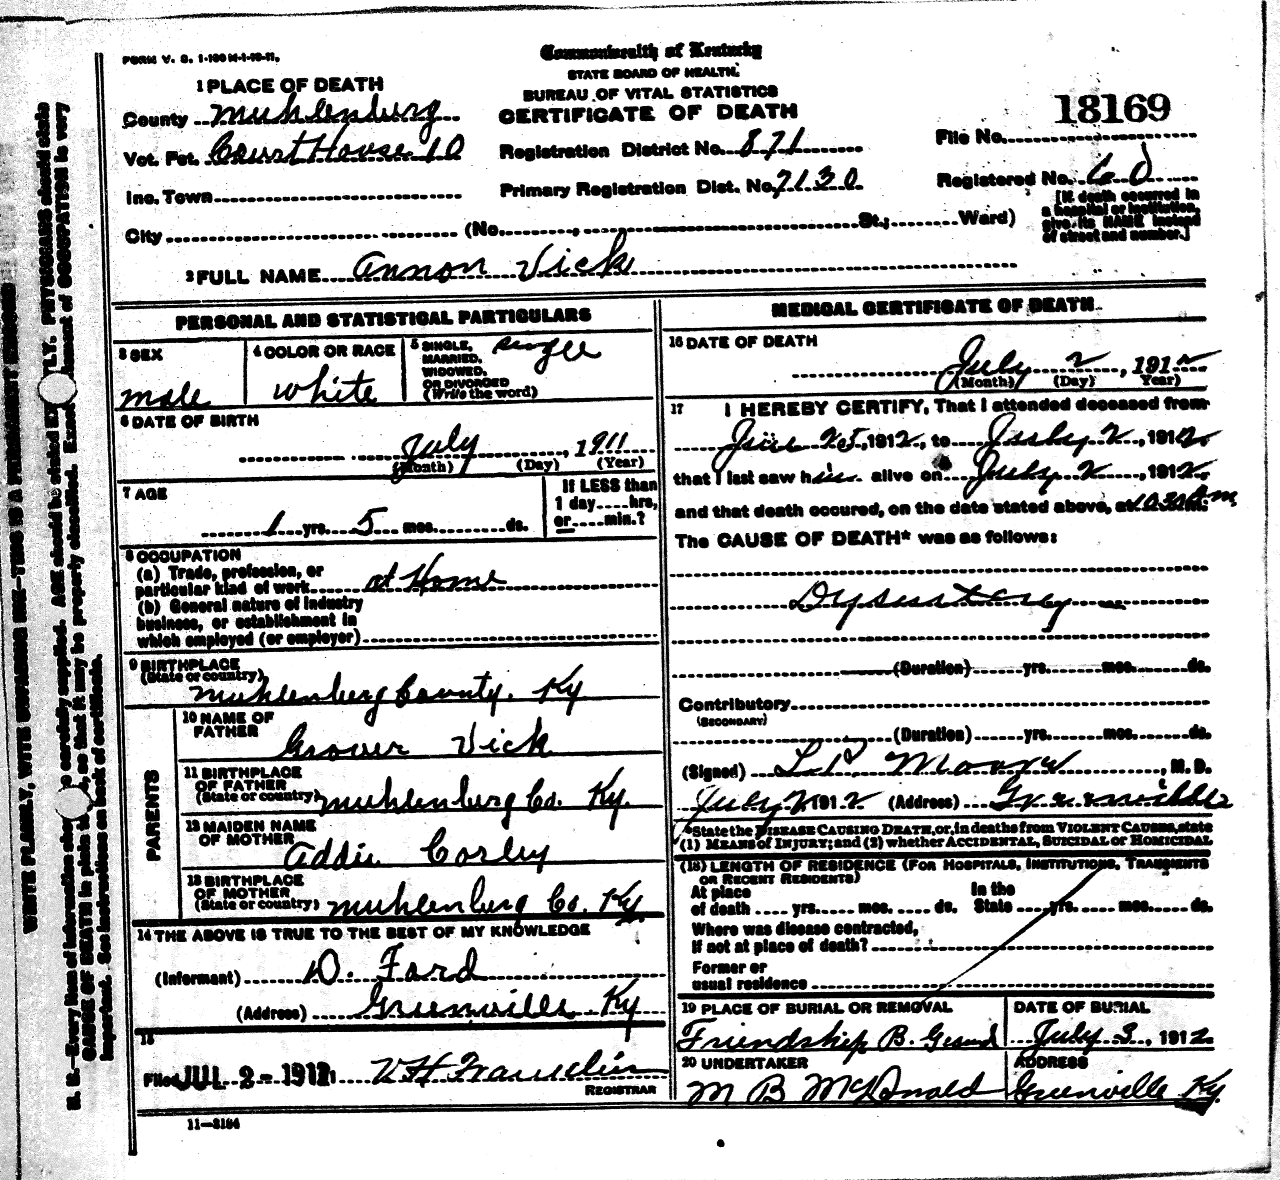 FORM V. S. 1-100 M-1-10-11.
Commonwealth of Kentucky
STATE BOARD OF HEALTH.
BUREAU OF VITAL STATISTICS
CERTIFICATE OF DEATH
1 PLACE OF DEATH
County Muhlenburg
Vot. Pct. Court House 10
Inc. Town
City (No. , St.; Ward)
Registration District No. 871
Primary Registration Dist. No. 7130
File No. 18169
Registered No. 60
[If death occurred in a hospital or institution, give its NAME instead of street and number.]
2 FULL NAME Annon Vick
PERSONAL AND STATISTICAL PARTICULARS
3 SEX
male
4 COLOR OR RACE
white
5 SINGLE, MARRIED, WIDOWED, OR DIVORCED (Write the word)
single
6 DATE OF BIRTH
July , 1911
(Month) (Day) (Year)
7 AGE
1 yrs. 5 mos. ds.
If LESS than 1 day hrs, or min.?
8 OCCUPATION
(a) Trade, profession, or
particular kind of work at Home
(b) General nature of industry
business, or establishment in
which employed (or employer)
9 BIRTHPLACE
(State or country)
Muhlenburg County. Ky
PARENTS
10 NAME OF FATHER
Grover Vick
11 BIRTHPLACE OF FATHER
(State or country) Muhlenburg Co. Ky.
12 MAIDEN NAME OF MOTHER
Addie Corley
13 BIRTHPLACE OF MOTHER
(State or country) Muhlenburg Co. Ky.
14 THE ABOVE IS TRUE TO THE BEST OF MY KNOWLEDGE
(Informant) D. Ford
(Address) Greenville Ky
15
Filed JUL 2 - 1912 V H Franklin
REGISTRAR
11-3184
MEDICAL CERTIFICATE OF DEATH
16 DATE OF DEATH
July 2 , 1912
(Month) (Day) (Year)
17 I HEREBY CERTIFY, That I attended deceased from
June 25, 1912, to July 2, 1912.
that I last saw him alive on July 2, 1912.
and that death occured, on the date stated above, at 10 30 A m.
The CAUSE OF DEATH* was as follows:
Dysentary
(Duration) yrs. mos. ds.
Contributory
(SECONDARY)
(Duration) yrs. mos. ds.
(Signed) L P Moore , M. D.
July 2 1912 (Address) Greenville
*State the DISEASE CAUSING DEATH, or, in deaths from VIOLENT CAUSES, state
(1) MEANS OF INJURY; and (2) whether ACCIDENTAL, SUICIDAL or HOMICIDAL
(18) LENGTH OF RESIDENCE (FOR HOSPITALS, INSTITUTIONS, TRANSIENTS
OR RECENT RESIDENTS)
At place of death yrs. mos. ds. In the State yrs. mos. ds.
Where was disease contracted,
if not at place of death?
Former or
usual residence
19 PLACE OF BURIAL OR REMOVAL
Friendship B. Ground
DATE OF BURIAL
July 3, 1912
20 UNDERTAKER
M B McDonald
ADDRESS
Greenville Ky